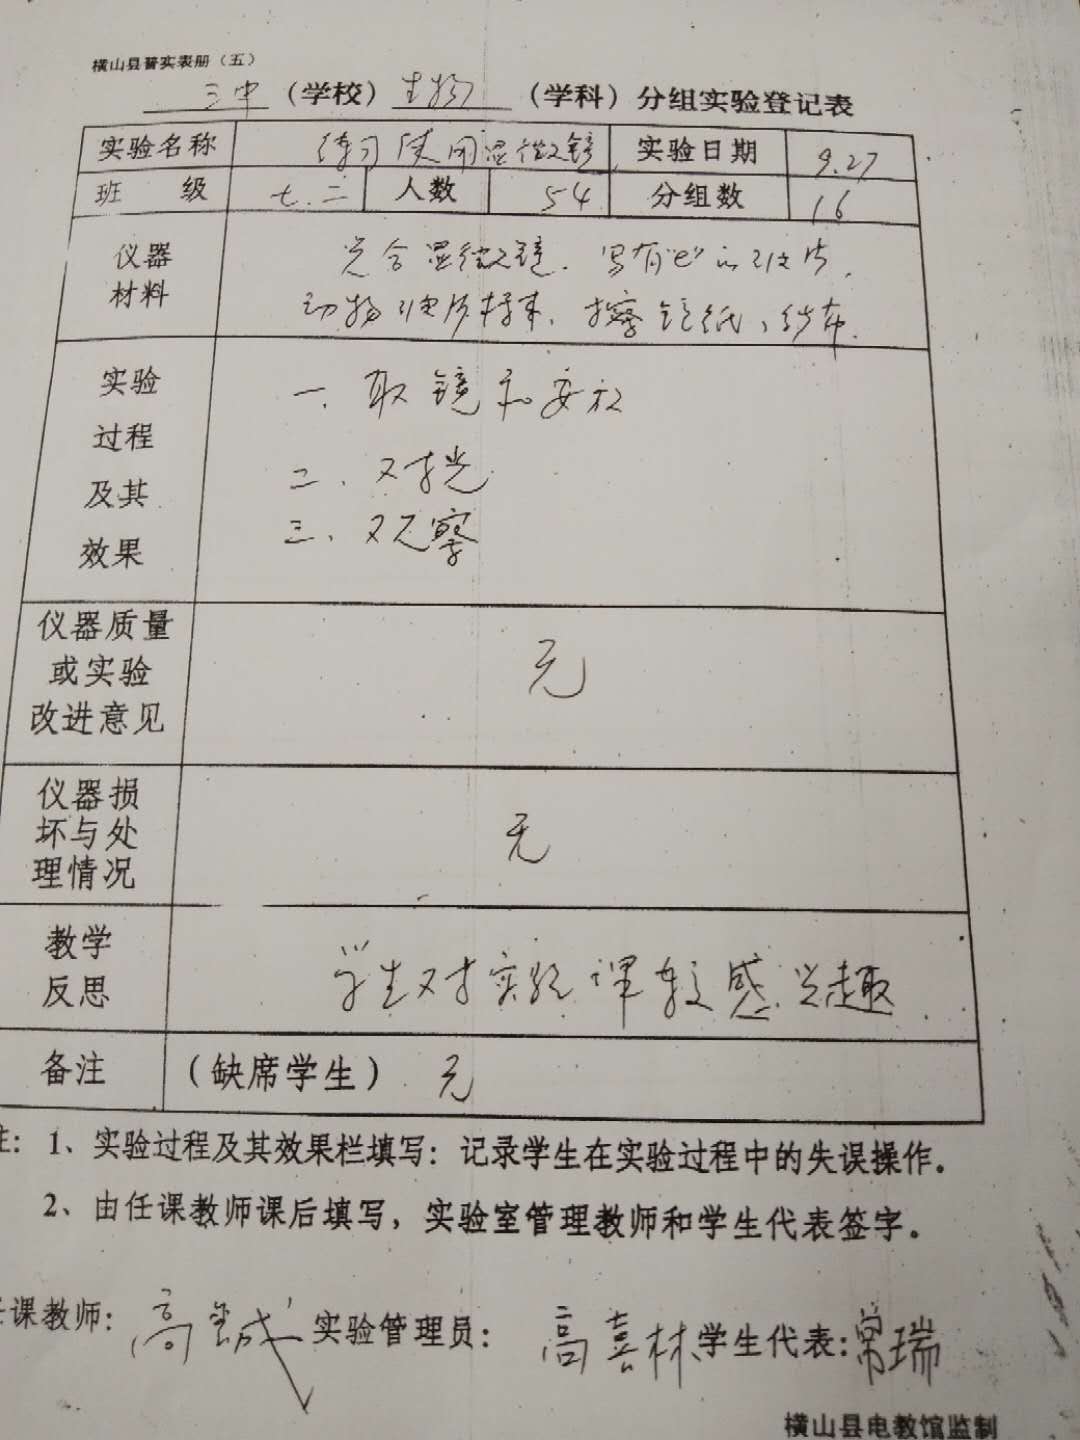 横山县普实表册（五）
三中（学校）生物（学科）分组实验登记表
实验名称 练习使用显微镜 实验日期 9.27
班 级 七.二 人数 54 分组数 16
仪器 光合显微镜.写有"e"的玻片.
材料 动物玻片标本、擦镜纸、纱布.
实验 一、取镜和安放
过程
及其 二、对光
效果 三、观察
仪器质量
或实验 无
改进意见
仪器损
坏与处 无
理情况
教学
反思 学生对实验课较感兴趣.
备注 （缺席学生） 无
注：1、实验过程及其效果栏填写：记录学生在实验过程中的失误操作。
2、由任课教师课后填写，实验室管理教师和学生代表签字。
任课教师：高 实验管理员：高喜林 学生代表：常瑞
横山县电教馆监制